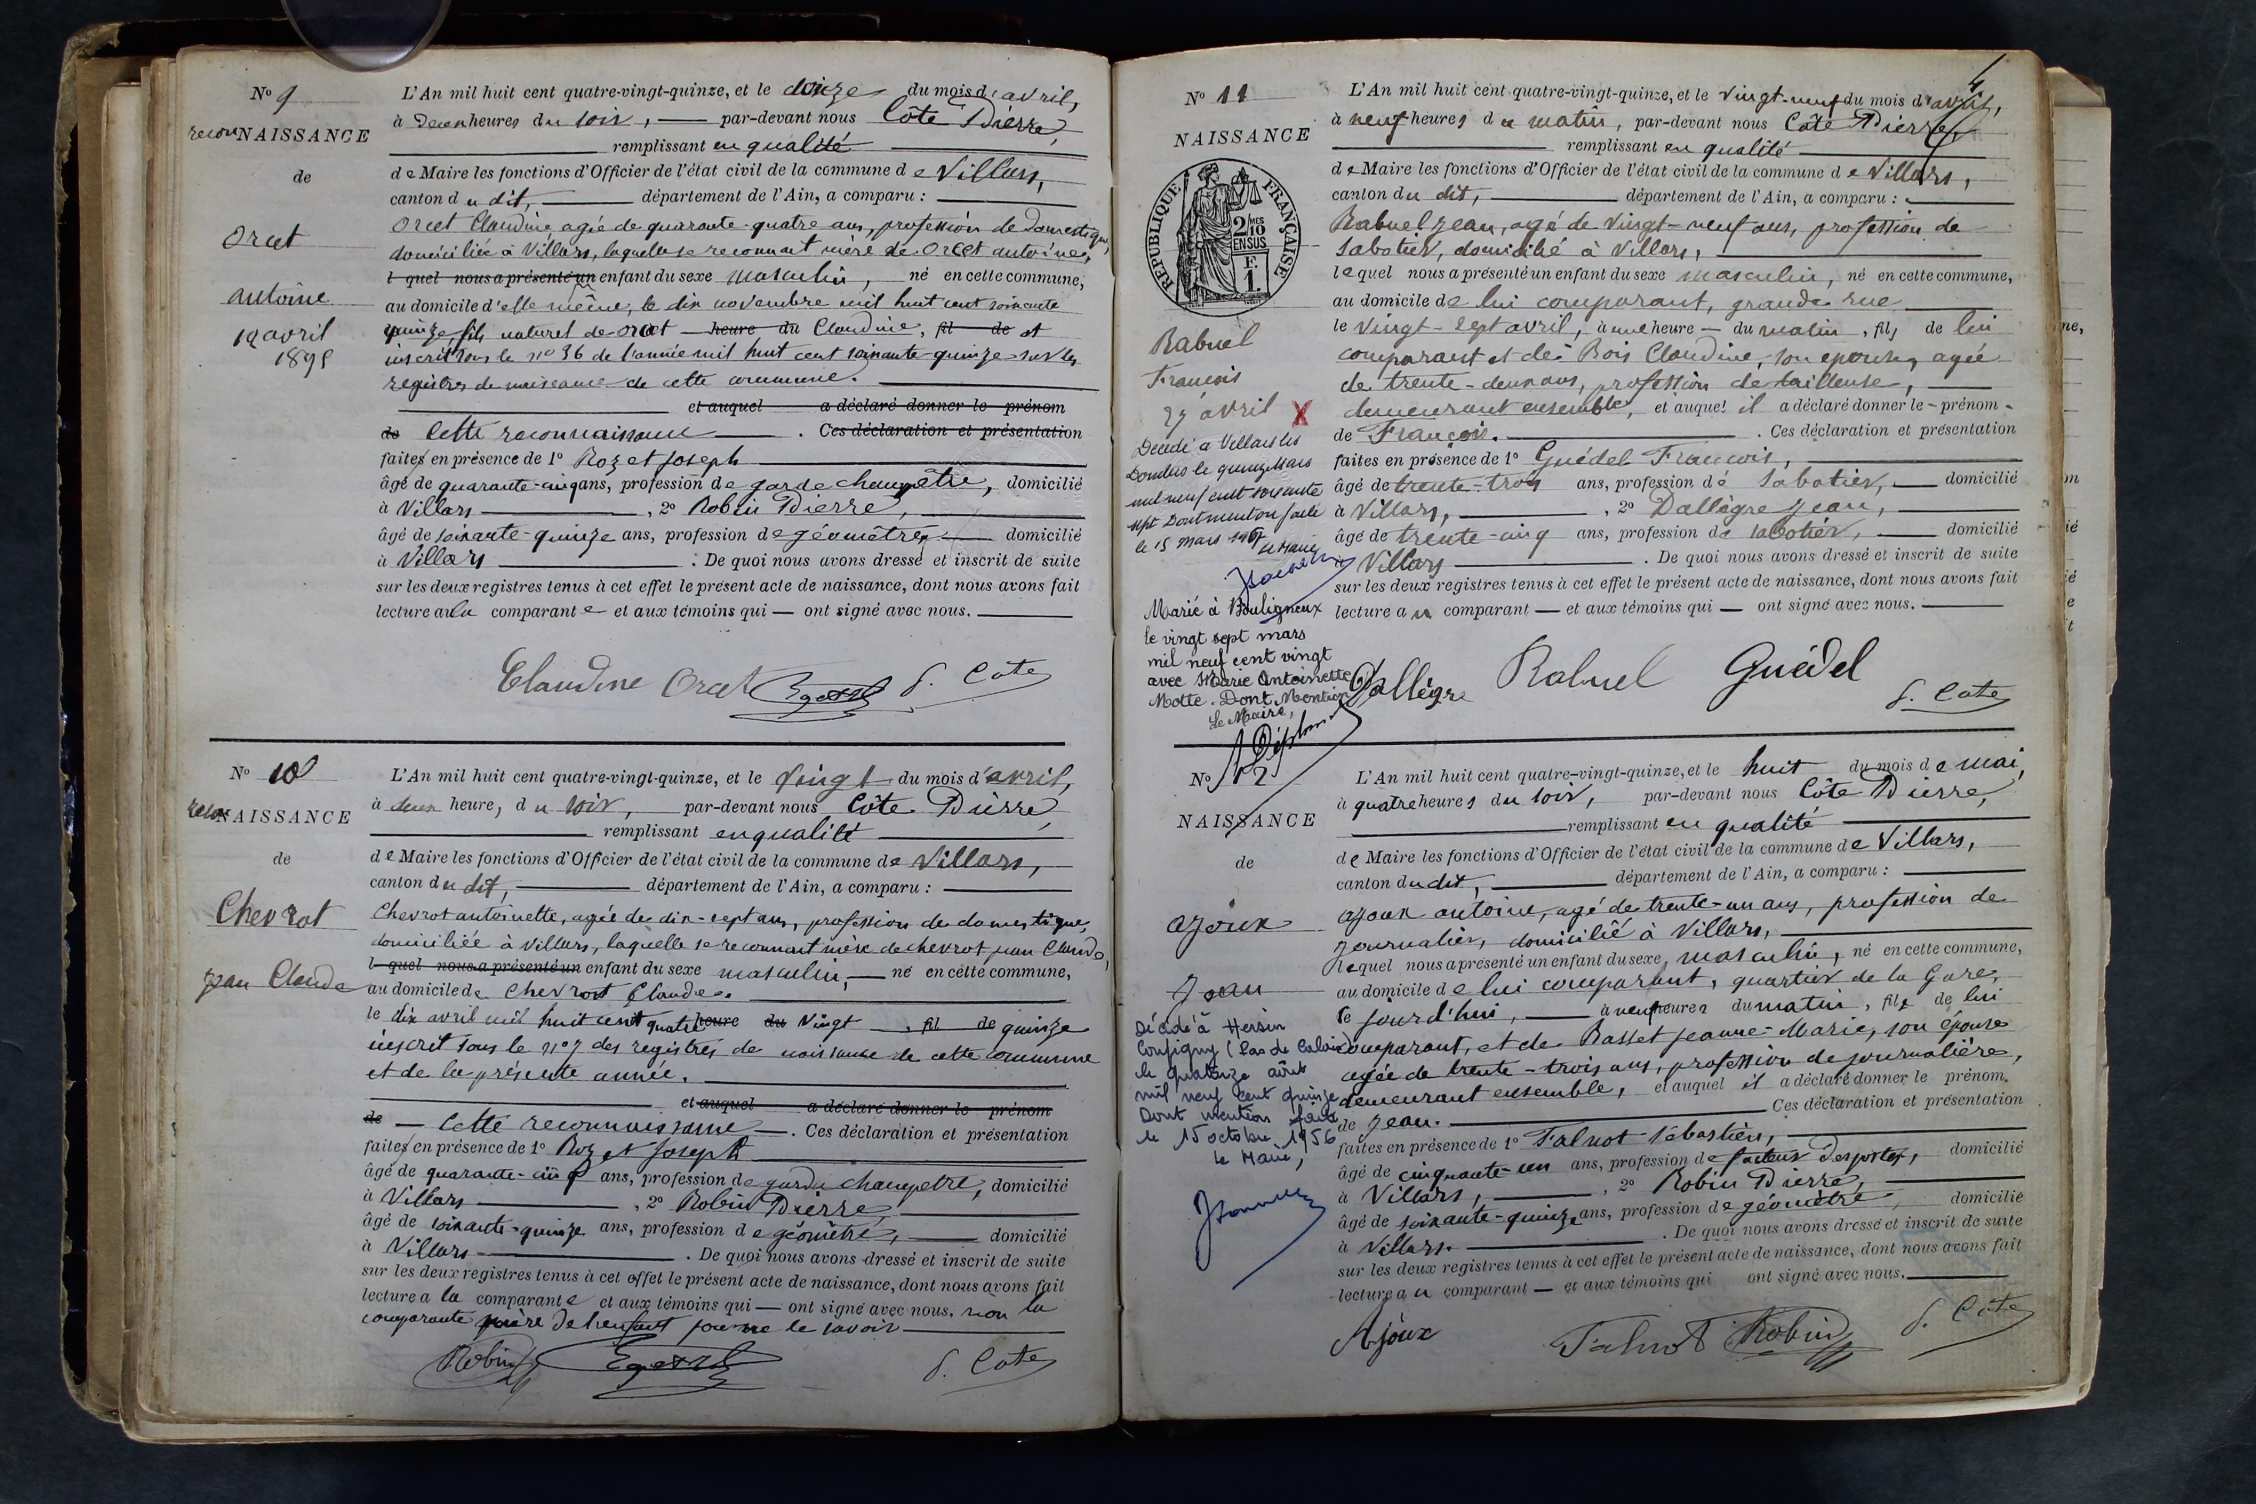 No 9
reconNAISSANCE
de
Orcet
antoine
1895
L'An mil huit cent quatre-vingt-quinze, et le du mois d'avril,
à deux heures du soir, — par-devant nous Côte Pierre,
remplissant en qualité
de Maire les fonctions d'Officier de l'état civil de la commune de Villars,
canton du dit, département de l'Ain, a comparu :
Orcet Claudine, agée de quarante-quatre ans, profession de domestique,
domiciliée à Villars, laquelle se reconnait mère de Orcet antoine,
l quel nous a présenté un enfant du sexe masculin, né en cette commune,
au domicile d'elle même, le dix novembre mil huit cent soixante
quinze, fils naturel de orcet — heure du Claudine, fil de et
inscrit sous le no 36 de l'année mil huit cent soixante-quinze sur les
registres de naissance de cette commune.
et auquel a déclaré donner le prénom
de Cette reconnaissance — . Ces déclaration et présentation
faites en présence de 1o Rozet Joseph
âgé de quarante-cinq ans, profession de garde champêtre, domicilié
à Villars — , 2o Robin Pierre,
âgé de soixante-quinze ans, profession de géomètre, domicilié
à Villars — : De quoi nous avons dressé et inscrit de suite
sur les deux registres tenus à cet effet le présent acte de naissance, dont nous avons fait
lecture a la comparante et aux témoins qui — ont signé avec nous.
Claudine Orcet P. Cote
No 10
reconNAISSANCE
de
Chevrot
jean Claude
L'An mil huit cent quatre-vingt-quinze, et le vingt du mois d'avril,
à deux heure, du soir, — par-devant nous Côte Pierre,
remplissant en qualité
de Maire les fonctions d'Officier de l'état civil de la commune de Villars,
canton du dit, département de l'Ain, a comparu :
Chevrot antoinette, agée de dix-sept ans, profession de domestique,
domiciliée à Villars, laquelle se reconnait mère de chevrot jean Claude,
l quel nous a présenté un enfant du sexe masculin, — né en cette commune,
au domicile de Chevrot Claude.
le dix avril mil huit cent quatre heure du Vingt — , fil de quinze
inscrit sous le no 7 des registres de naissance de cette commune
et de la présente année.
et auquel a déclaré donner le prénom
de — Cette reconnaissance — . Ces déclaration et présentation
faites en présence de 1o Rozet Joseph
âgé de quarante-cinq ans, profession de garde champetre, domicilié
à Villars — , 2o Robin Pierre,
âgé de soixante-quinze ans, profession de géomètre, — domicilié
à Villars — . De quoi nous avons dressé et inscrit de suite
sur les deux registres tenus à cet effet le présent acte de naissance, dont nous avons fait
lecture a la comparante et aux témoins qui — ont signé avec nous, non la
comparante mère de l'enfant pour ne le savoir
Robin P. Cote
4
No 11
NAISSANCE
RÉPUBLIQUE FRANÇAISE
2/10 MES
EN SUS
F.
1.
Rabuel
François
27 avril X
Décédé à Villars les
Dombes le quinze Mars
mil neuf cent soixante
sept Dont mention faite
le 15 Mars 1967
Le Maire
Marié à Bouligneux
le vingt sept mars
mil neuf cent vingt
avec Marie Antoinette
Motte. Dont Mention
Le Maire,
L'An mil huit cent quatre-vingt-quinze, et le vingt-neuf du mois d'avril,
à neuf heures du matin, par-devant nous Côte Pierre,
remplissant en qualité
de Maire les fonctions d'Officier de l'état civil de la commune de Villars,
canton du dit, département de l'Ain, a comparu :
Rabuel jean, agé de Vingt-neuf ans, profession de
sabotier, domicilié à Villars,
lequel nous a présenté un enfant du sexe masculin, né en cette commune,
au domicile de lui comparant, grande rue
le vingt-sept avril, à une heure — du matin, fils de lui
comparant et de Bois Claudine, son epouse, agée
de trente-deux ans, profession de tailleuse,
demeurant ensemble, et auquel il a déclaré donner le - prénom -
de François. . Ces déclaration et présentation
faites en présence de 1o Guédel François,
âgé de trente-trois ans, profession de sabotier, — domicilié
à Villars, , 2o Dallègre jean,
âgé de trente-cinq ans, profession de sabotier, — domicilié
à Villars . De quoi nous avons dressé et inscrit de suite
sur les deux registres tenus à cet effet le présent acte de naissance, dont nous avons fait
lecture au comparant — et aux témoins qui — ont signé avec nous.
Dallègre Rabuel Guédel P. Cote
No 12
NAISSANCE
de
ajoux
Jean
Décédé à Hersin
Coupigny (Pas de Calais)
le quatorze août
mil neuf cent quinze
Dont mention faite
le 15 octobre 1956
Le Maire,
L'An mil huit cent quatre-vingt-quinze, et le huit du mois de mai,
à quatre heures du soir, par-devant nous Côte Pierre,
remplissant en qualité
de Maire les fonctions d'Officier de l'état civil de la commune de Villars,
canton du dit, département de l'Ain, a comparu :
ajoux antoine, agé de trente-un ans, profession de
journalier, domicilié à Villars,
lequel nous a présenté un enfant du sexe masculin, né en cette commune,
au domicile de lui comparant, quartier de la Gare,
le jourd'hui, — à neuf heures du matin, fils de lui
comparant, et de Basset jeanne-Marie, son épouse
agée de trente-trois ans, profession de journalière,
demeurant ensemble, et auquel il a déclaré donner le prénom.
de jean. Ces déclaration et présentation
faites en présence de 1o Falnot Sébastien,
âgé de cinquante-un ans, profession de facteur des postes, domicilié
à Villars, , 2o Robin Pierre,
âgé de soixante-quinze ans, profession de géomètre, domicilié
à Villars. . De quoi nous avons dressé et inscrit de suite
sur les deux registres tenus à cet effet le présent acte de naissance, dont nous avons fait
lecture au comparant — et aux témoins qui ont signé avec nous.
Ajoux Falnot Robin P. Côte